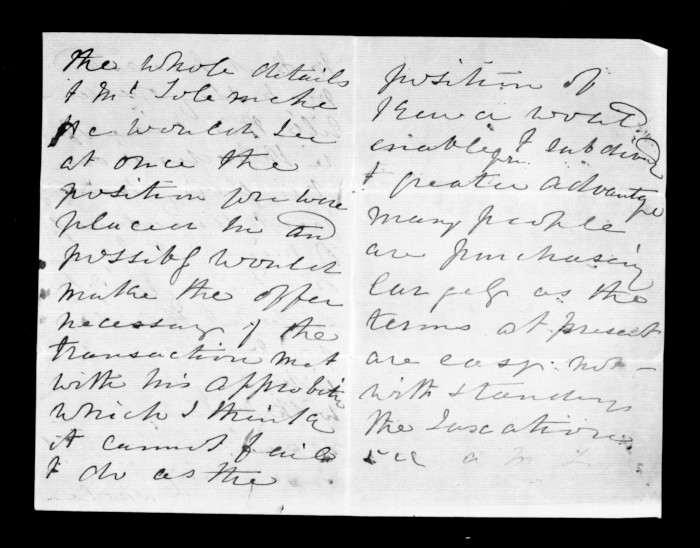 the whole details
to Mr Tolemache
He would see
at once the
position you were
placed in and
possibly would
make the offer
necessary if the
transaction met
with his approbation
which I think
it cannot fail
to do as the
position of
would
enable you to subdivide
to greater advantage
many people
are purchasing
largely as the
terms at present
are easy not-
with standing
the Taxation